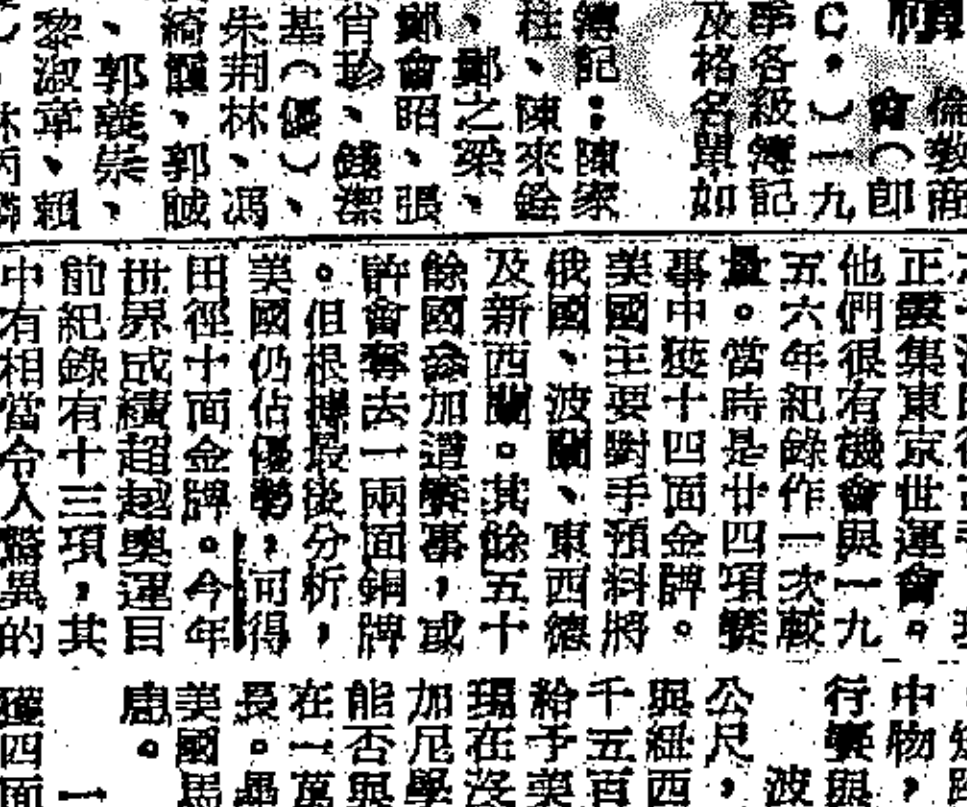 倫敦商
會（即
C．（一九
季各級簿記
及格名單如
簿記：陳家
桂、陳來銓
、鄭之梁、
鄭會昭、張
肖珍、錢潔
基（優）、
朱荆林、馮
綺馥、郭誠
、郭義崇、
黎淑章、賴
正雲集東京世運會。
他們很有機會與一九
五六年紀錄作一次較
量。當時是廿四項賽
事中獲十四面金牌。
美國主要對手預料將
俄國、波蘭、東西德
及新西蘭。其餘五十
餘國參加遭賽事，或
許會奪去一兩面銅牌
。但根據最後分析，
美國仍佔優勢，可得
田徑十面金牌。今年
世界成績超越奧運目
前紀錄有十三項，其
中有相當令人驚異的
中物，
行賽與
波
公尺，
與紐西
千五百
給予美
現在沒
加尼學
能否與
在一萬
長。
美國馬
。
一
獲四面